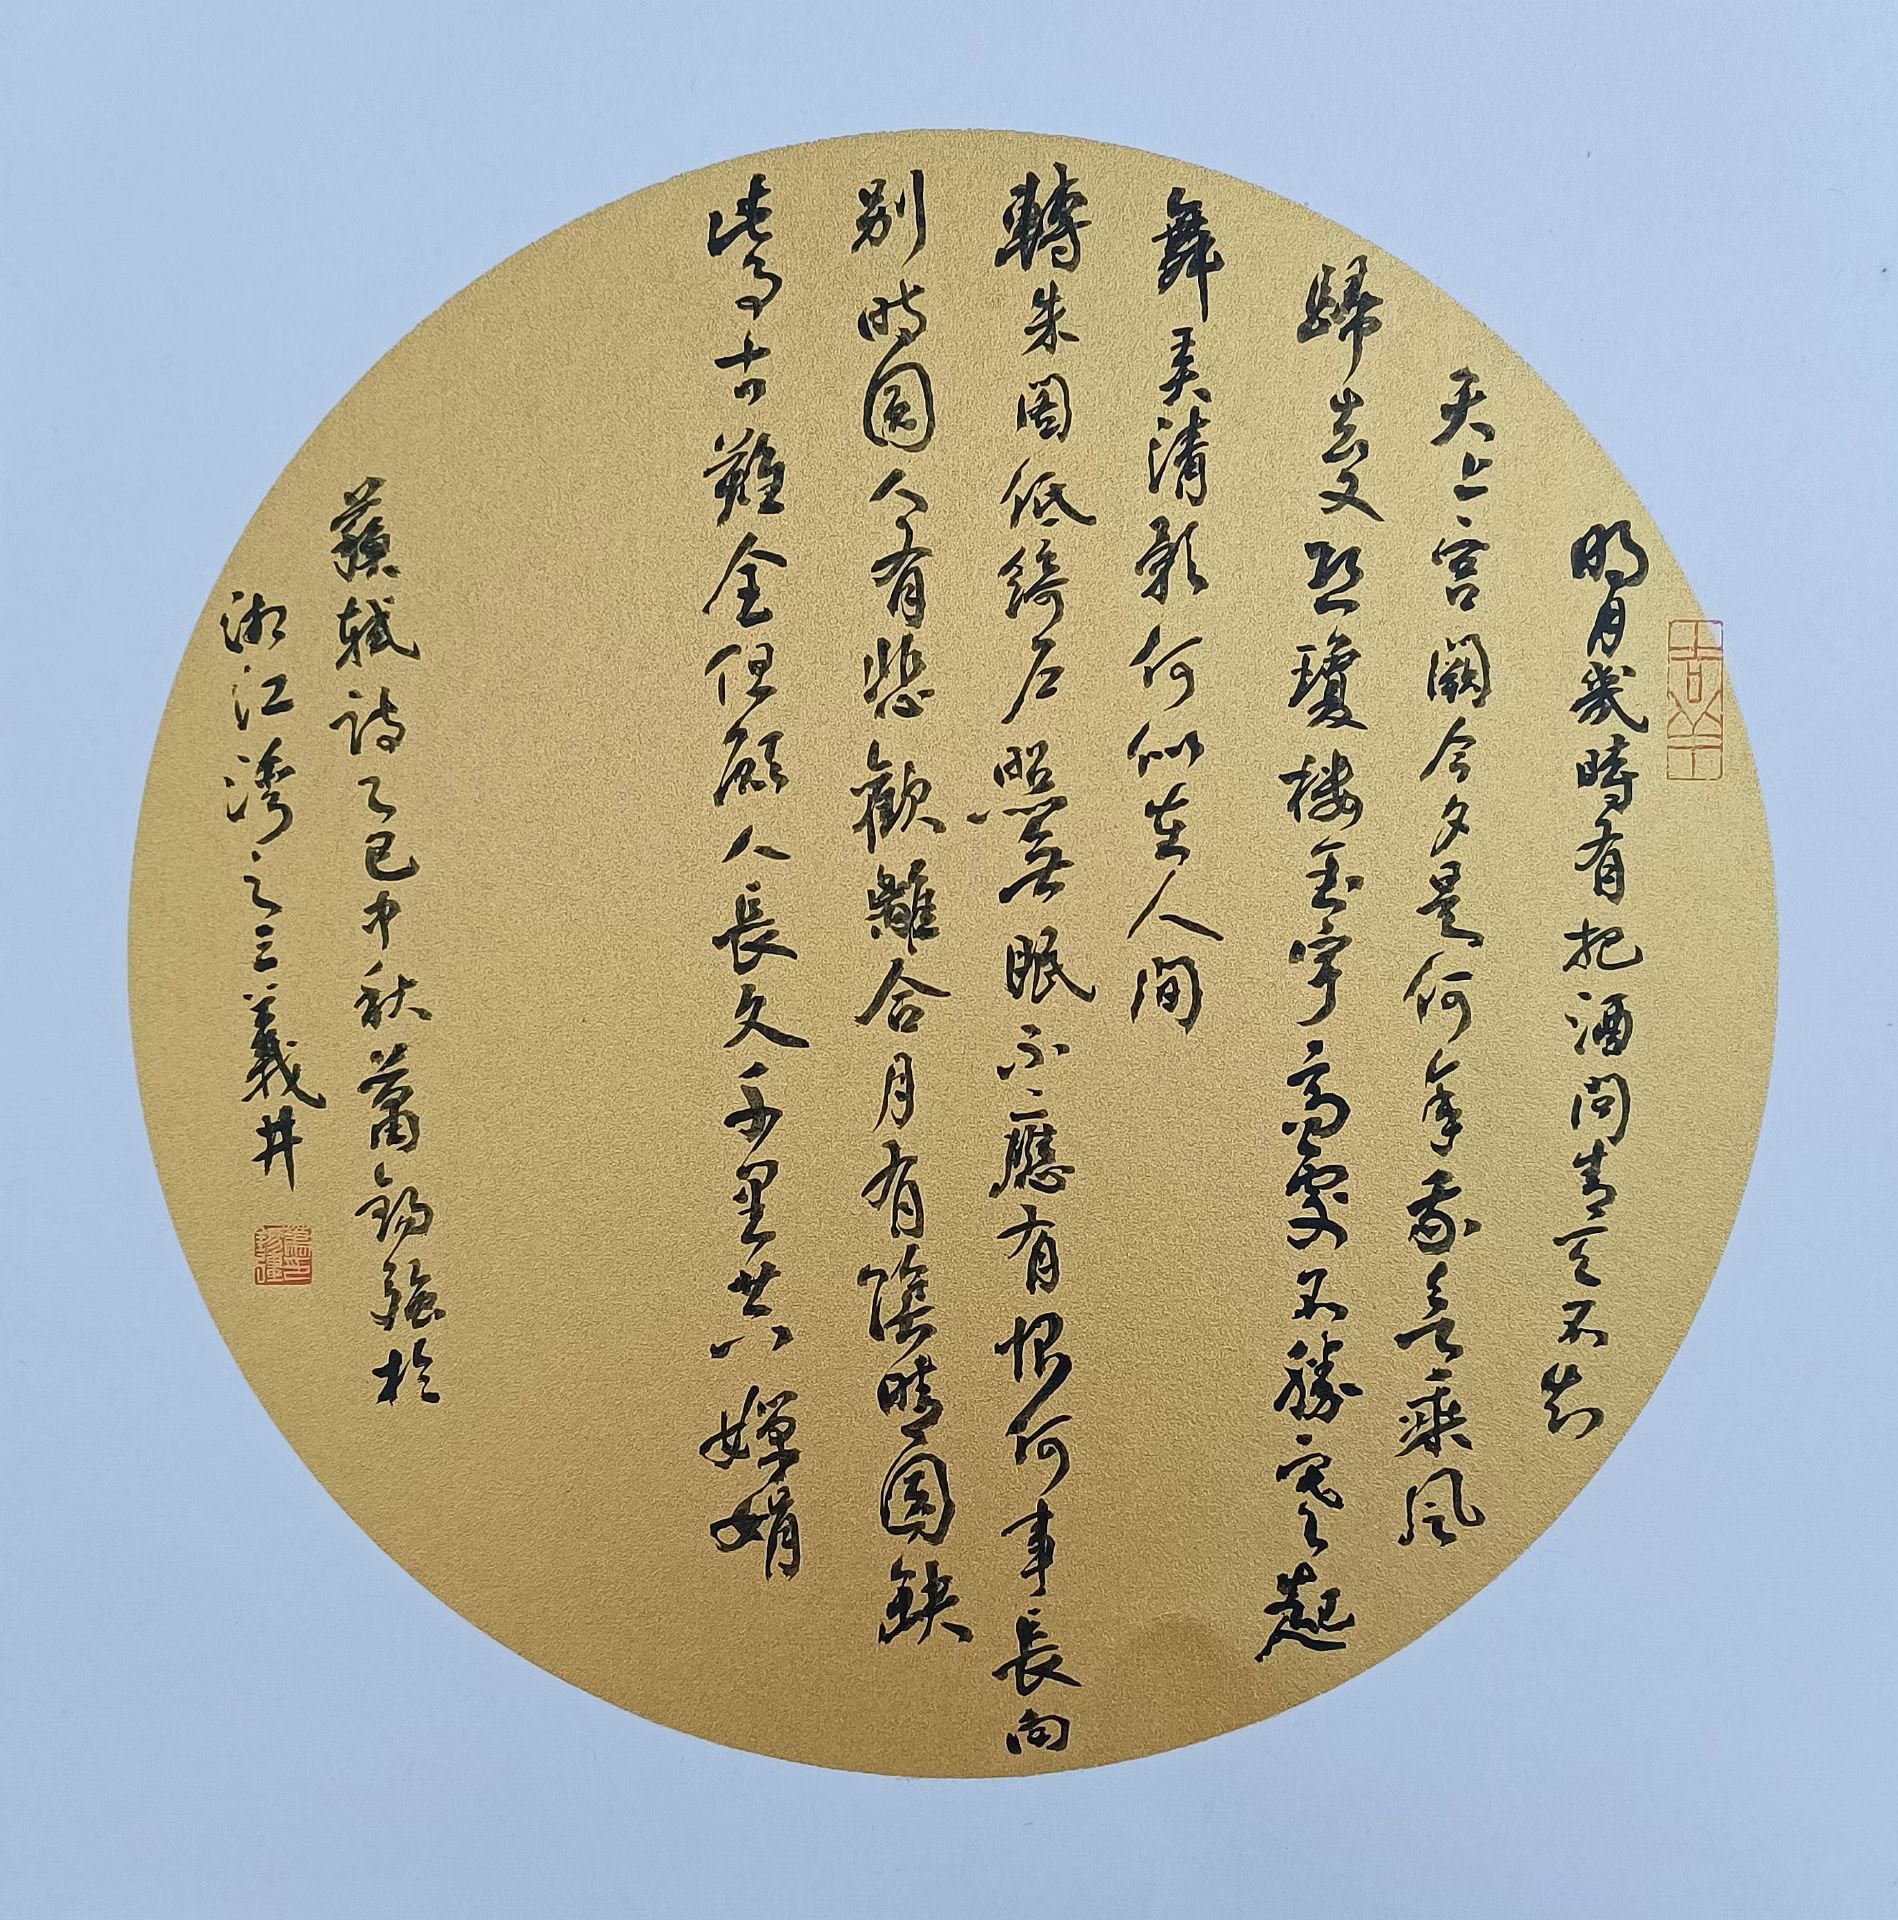 明月幾時有把酒問青天不知
天上宮闕今夕是何年我欲乘風
歸去又恐瓊楼玉宇高處不勝寒起
舞弄清影何似在人間
轉朱閣低綺戶照無眠不應有恨何事長向
别時圓人有悲歡離合月有陰晴圓缺
此事古難全但願人長久千里共嬋娟
蘇軾詩乙巳中秋蕭錫強於
湘江灣之三義井